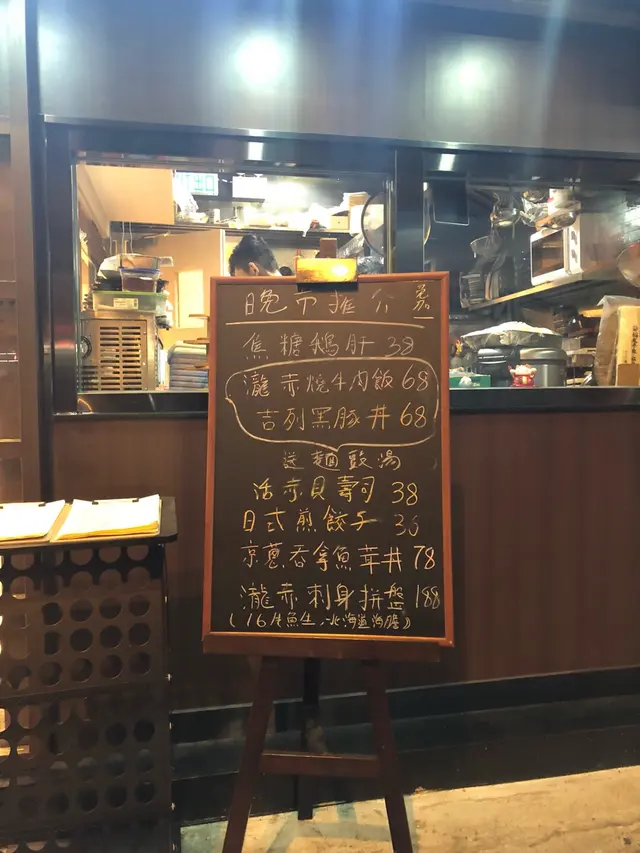 晚市推介
焦糖鵝肝 38
瀧赤燒牛肉飯 68
吉列黑豚丼 68
送麵豉湯
活赤貝壽司 38
日式煎餃子 36
京蔥吞拿魚茸丼 78
瀧赤刺身拼盤 188
(16片魚生,北海道海膽)